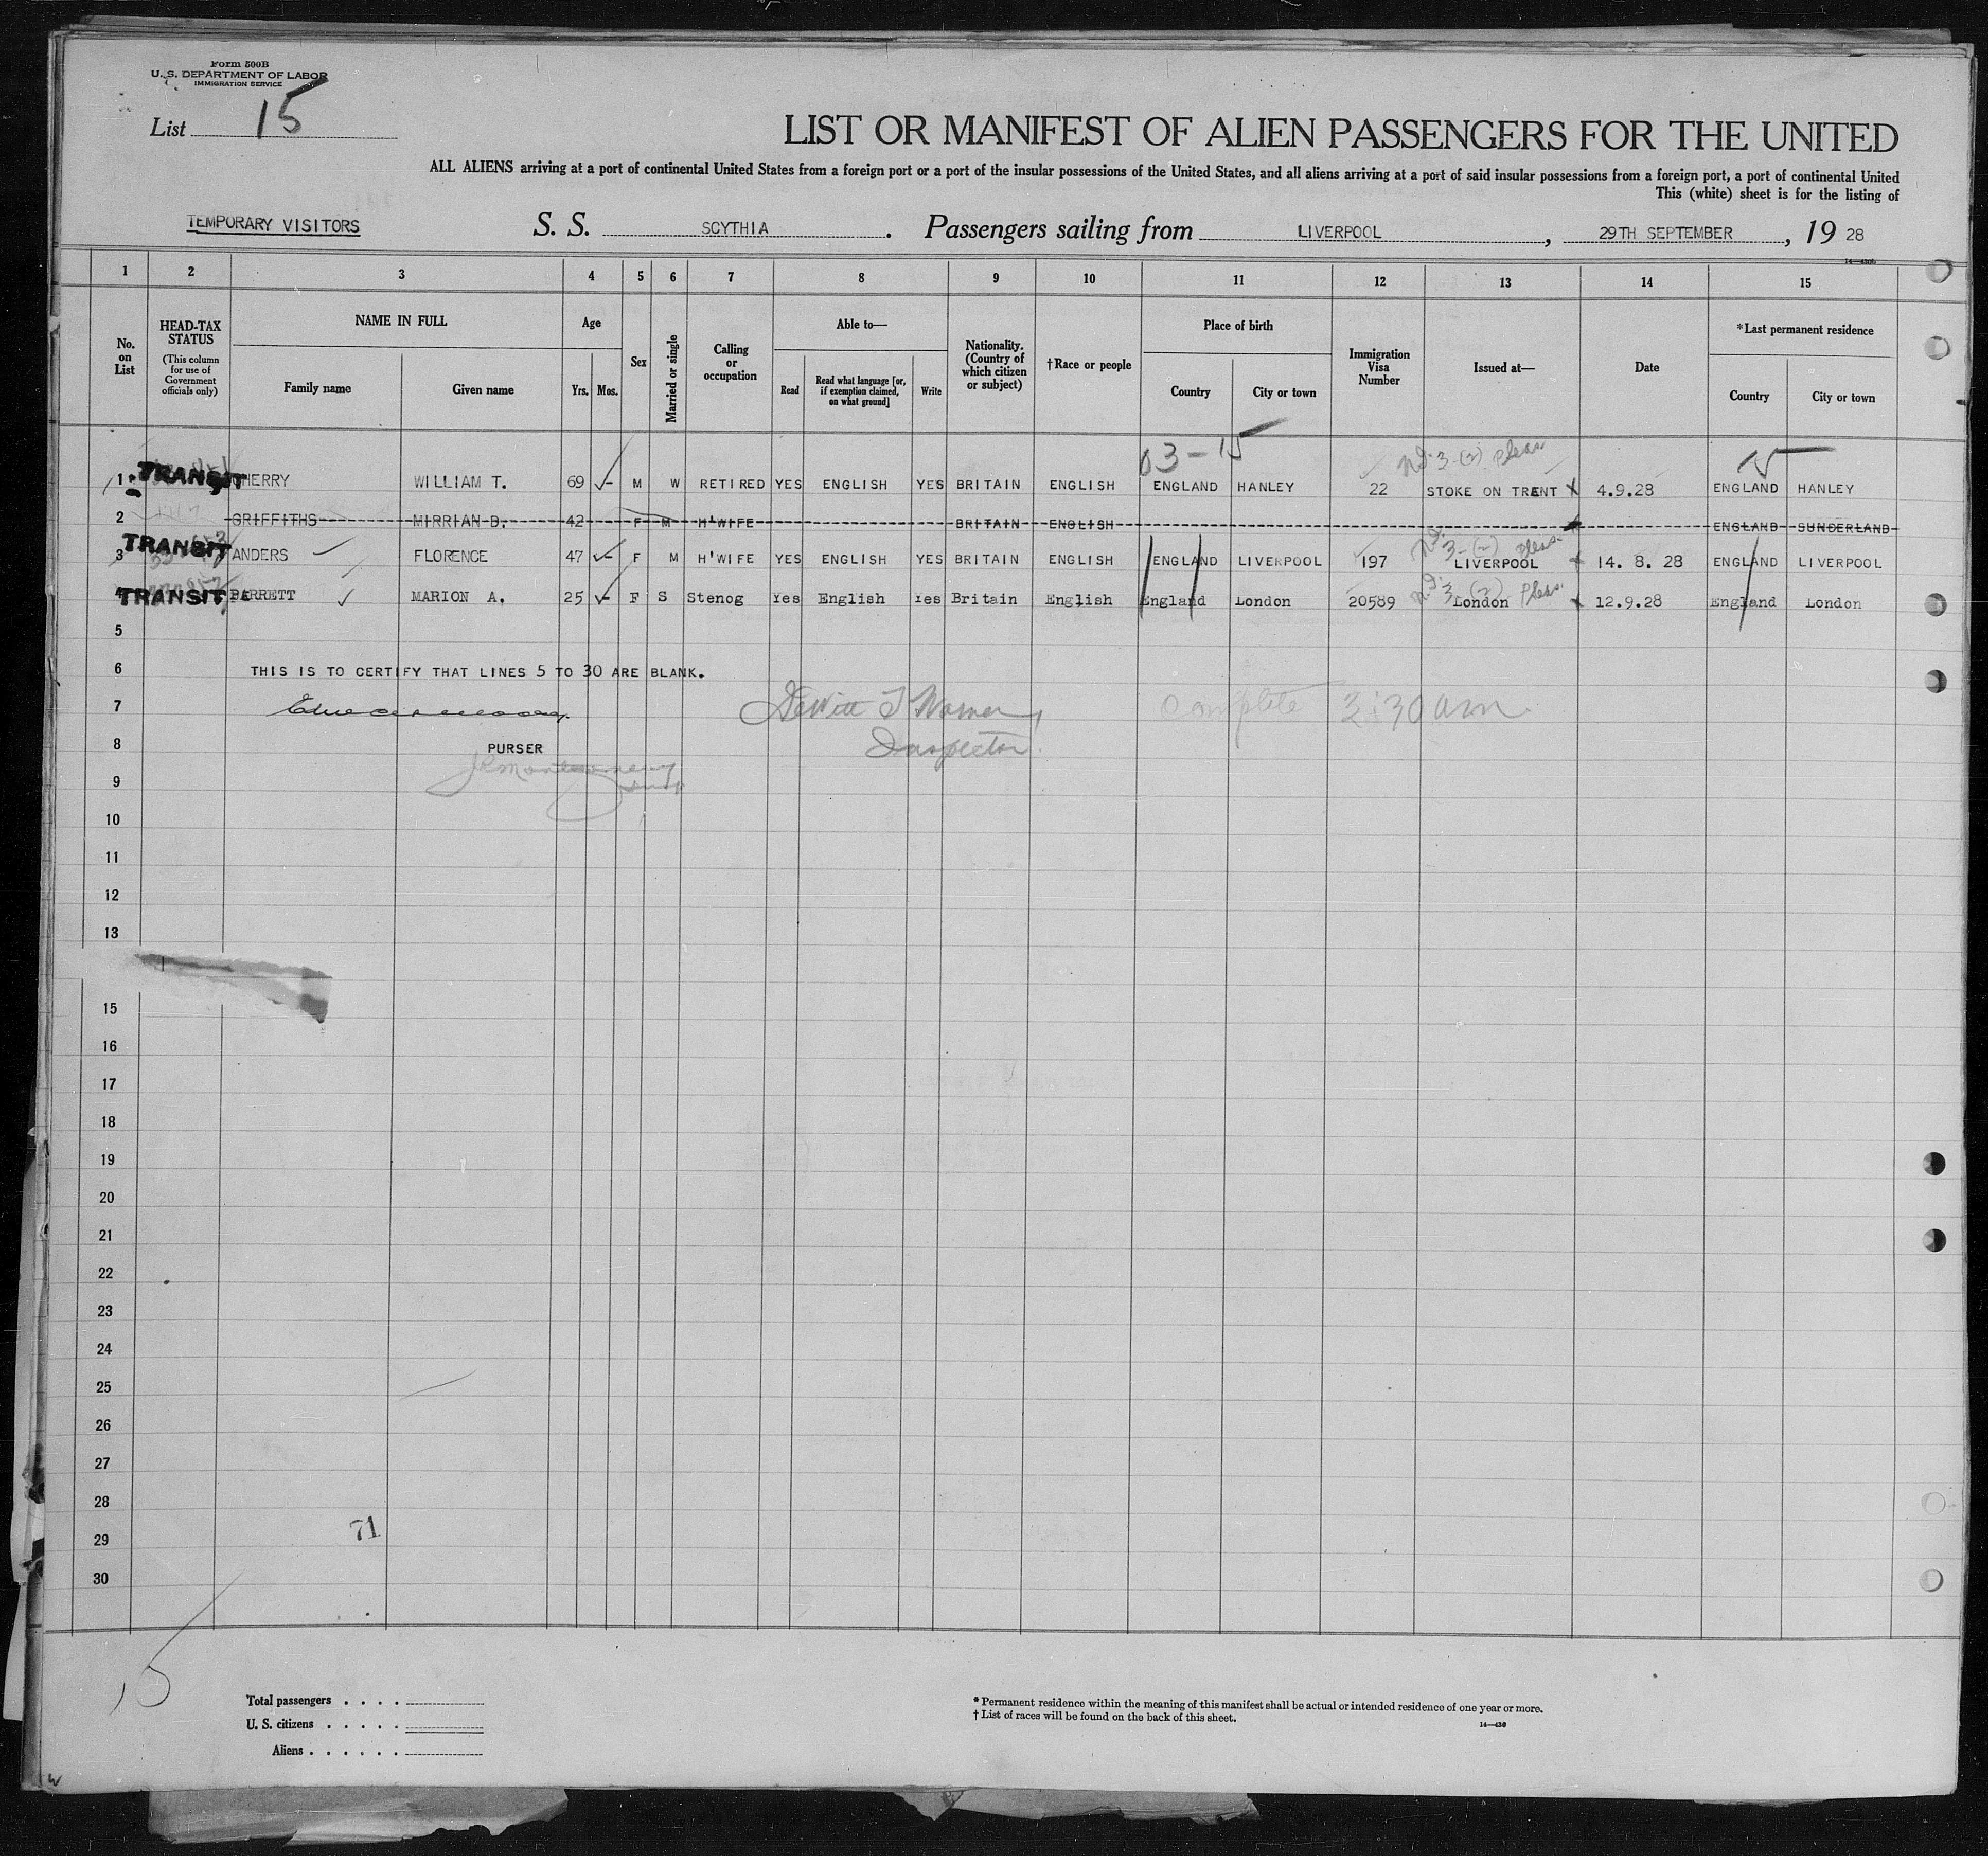 Form 500B
U. S. DEPARTMENT OF LABOR
IMMIGRATION SERVICE
List 15
LIST OR MANIFEST OF ALIEN PASSENGERS FOR THE UNITED
ALL ALIENS arriving at a port of continental United States from a foreign port or a port of the insular possessions of the United States, and all aliens arriving at a port of said insular possessions from a foreign port, a port of continental United
This (white) sheet is for the listing of
TEMPORARY VISITORS S. S. SCYTHIA . Passengers sailing from LIVERPOOL , 29TH SEPTEMBER , 19 28
1 2 3 4 5 6 7 8 9 10 11 12 13 14 15
No. on List
HEAD-TAX STATUS
(This column for use of Government officials only)
NAME IN FULL
Family name Given name
Age
Yrs. Mos.
Sex
Married or single
Calling or occupation
Able to—
Read
Read what language [or, if exemption claimed, on what ground]
Write
Nationality. (Country of which citizen or subject)
†Race or people
Place of birth
Country City or town
Immigration Visa Number
Issued at—
Date
*Last permanent residence
Country City or town
03-15 15
1 TRANSIT CHERRY WILLIAM T. 69 M W RETIRED YES ENGLISH YES BRITAIN ENGLISH ENGLAND HANLEY 22 STOKE ON TRENT 4.9.28 ENGLAND HANLEY
2 GRIFFITHS MIRRIAN B. 42 F M H'WIFE BRITAIN ENGLISH ENGLAND SUNDERLAND
3 TRANSIT ANDERS FLORENCE 47 F M H'WIFE YES ENGLISH YES BRITAIN ENGLISH ENGLAND LIVERPOOL 197 LIVERPOOL 14. 8. 28 ENGLAND LIVERPOOL
4 TRANSIT BARRETT MARION A. 25 F S Stenog Yes English Yes Britain English England London 20589 London 12.9.28 England London
5
6 THIS IS TO CERTIFY THAT LINES 5 TO 30 ARE BLANK.
7 complete 3:30 am
8 PURSER Inspector
9
10
11
12
13
15
16
17
18
19
20
21
22
23
24
25
26
27
28
29 71
30
15
Total passengers . . . .
U. S. citizens . . . . .
Aliens . . . . . .
* Permanent residence within the meaning of this manifest shall be actual or intended residence of one year or more.
† List of races will be found on the back of this sheet.